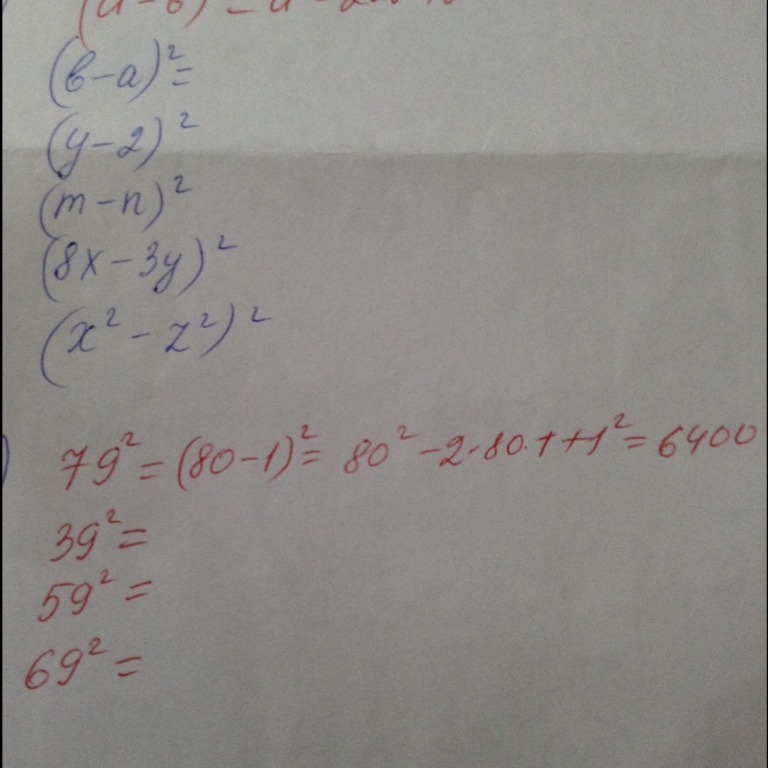 (в-а)²=
(y-2)²
(m-n)²
(8x-3y)²
(x²-z²)²
79²=(80-1)²= 80²-2·80·1+1²=6400
39²=
59²=
69²=